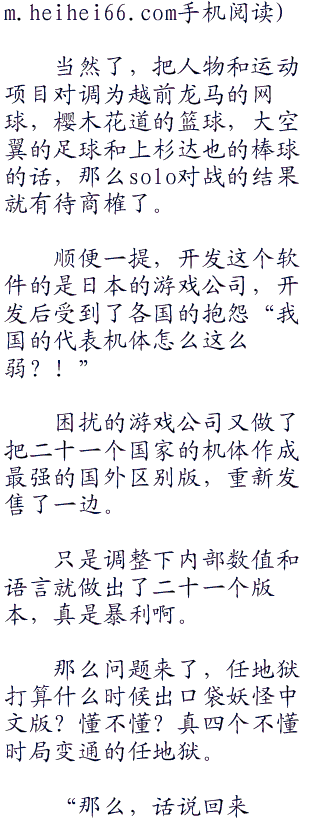 m.heihei66.com手机阅读)
当然了，把人物和运动
项目对调为越前龙马的网
球，樱木花道的篮球，大空
翼的足球和上杉达也的棒球
的话，那么solo对战的结果
就有待商榷了。
顺便一提，开发这个软
件的是日本的游戏公司，开
发后受到了各国的抱怨“我
国的代表机体怎么这么
弱？！”
困扰的游戏公司又做了
把二十一个国家的机体作成
最强的国外区别版，重新发
售了一边。
只是调整下内部数值和
语言就做出了二十一个版
本，真是暴利啊。
那么问题来了，任地狱
打算什么时候出口袋妖怪中
文版？懂不懂？真四个不懂
时局变通的任地狱。
“那么，话说回来